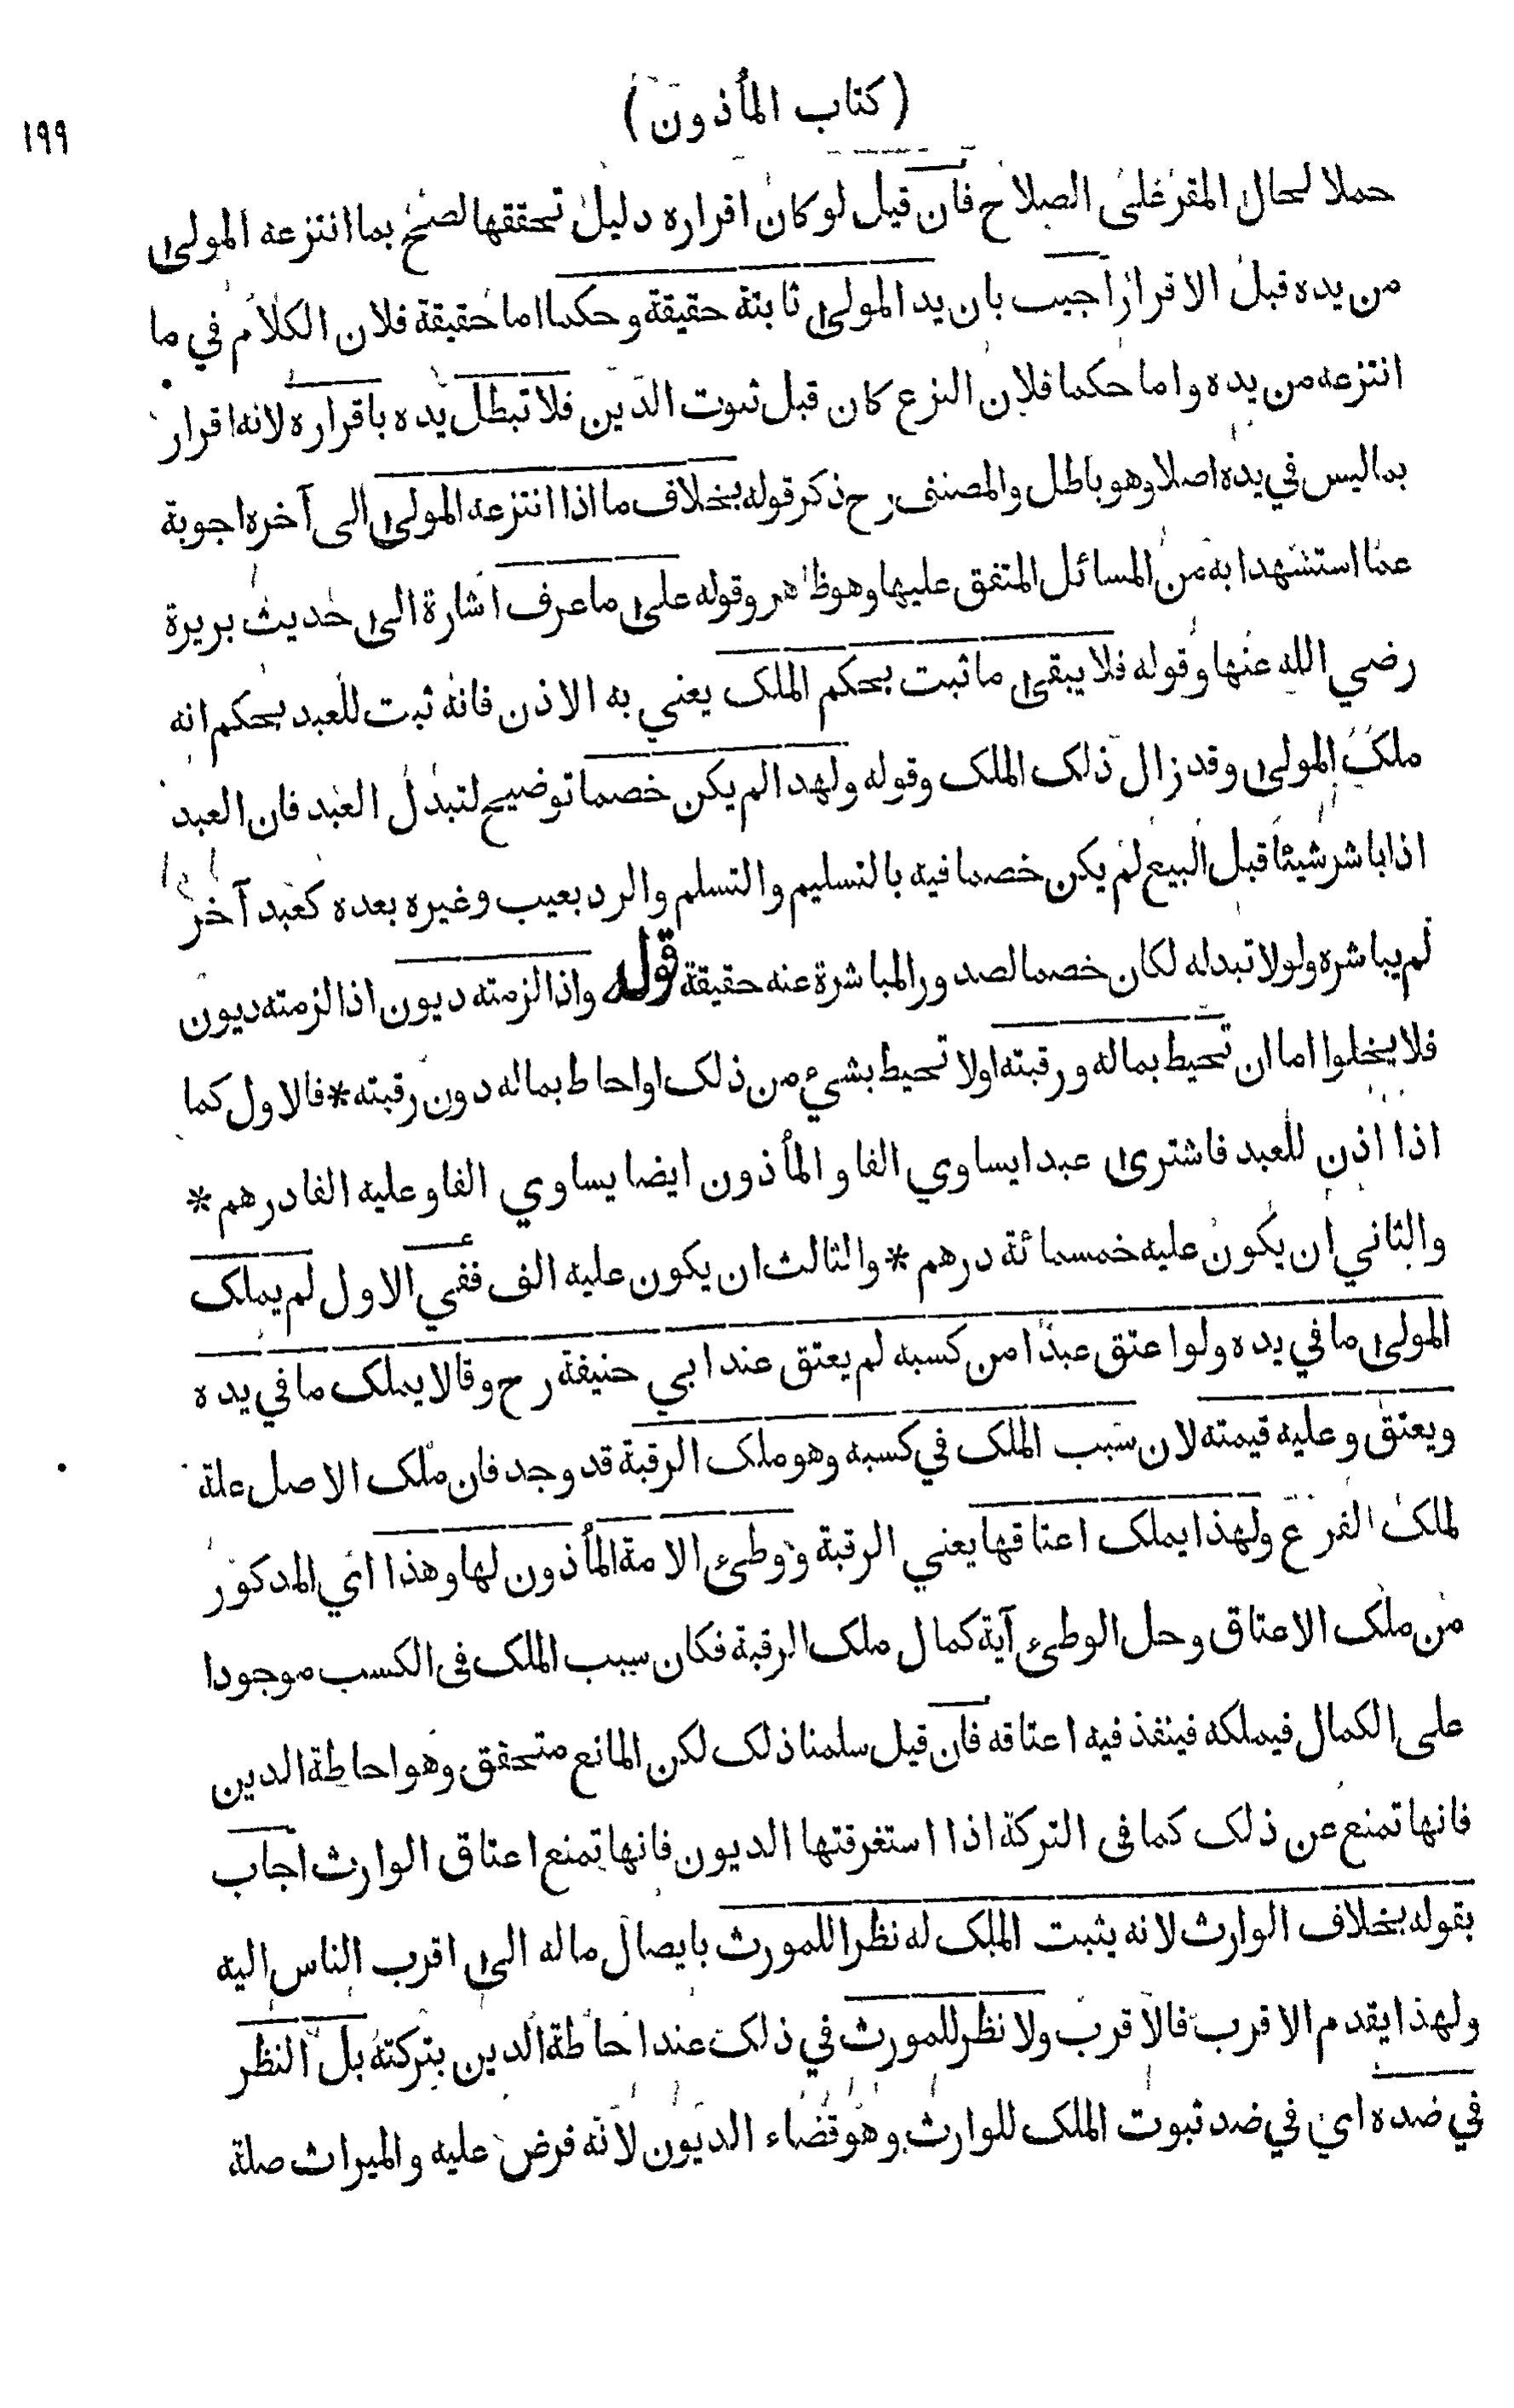 (كتاب المأذون)
١٩٩
حملا لحال المقر على الصلاح فان قيل لو كان اقراره دليل تحققها لصح بما انتزعه المولى
من يده قبل الاقرار اجيب بان يد المولى ثابتة حقيقة وحكما اما حقيقة فلان الكلام في ما
انتزعه من يده واما حكما فلان النزع كان قبل ثبوت الدين فلا تبطل يده باقراره لانه اقرار
بما ليس في يده اصلا وهو باطل والمصنف رح ذكر قوله بخلاف ما اذا انتزعه المولى الى آخره اجوبة
عما استشهدا به من المسائل المتفق عليها وهو ظاهر وقوله على ما عرف اشارة الى حديث بريرة
رضي الله عنها وقوله فلا يبقى ما ثبت بحكم الملك يعني به الاذن فانه ثبت للعبد بحكم انه
ملك المولى وقد زال ذلك الملك وقوله ولهذا لم يكن خصما توضيح لتبدل العبد فان العبد
اذا باشر شيئا قبل البيع لم يكن خصما فيه بالتسليم والتسلم والرد بعيب وغيره بعده كعبد آخر
لم يباشره ولولا تبدله لكان خصما لصدور المباشرة عنه حقيقة قوله واذا لزمته ديون اذا لزمته ديون
فلا يخلوا اما ان تحيط بماله ورقبته اولا تحيط بشيء من ذلك او احاط بماله دون رقبته * فالاول كما
اذا اذن للعبد فاشترى عبدا يساوي الفا والمأذون ايضا يساوي الفا وعليه الفا درهم *
والثاني ان يكون عليه خمسمائة درهم * والثالث ان يكون عليه الف ففي الاول لم يملك
المولى ما في يده ولو اعتق عبدا من كسبه لم يعتق عند ابي حنيفة رح وقالا يملك ما في يده
ويعتق وعليه قيمته لان سبب الملك في كسبه وهو ملك الرقبة قد وجد فان ملك الاصل علة
لملك الفرع ولهذا يملك اعتاقها يعني الرقبة ووطئ الامة المأذون لها وهذا اي المذكور
من ملك الاعتاق وحل الوطئ آية كمال ملك الرقبة فكان سبب الملك فى الكسب موجودا
على الكمال فيملكه فينفذ فيه اعتاقه فان قيل سلمنا ذلك لكن المانع متحقق وهو احاطة الدين
فانها تمنع عن ذلك كما فى التركة اذا استغرقتها الديون فانها تمنع اعتاق الوارث اجاب
بقوله بخلاف الوارث لانه يثبت الملك له نظرا للمورث بايصال ماله الى اقرب الناس اليه
ولهذا يقدم الاقرب فالاقرب ولا نظر للمورث في ذلك عند احاطة الدين بتركته بل النظر
في ضده اي في ضد ثبوت الملك للوارث وهو قضاء الديون لانه فرض عليه والميراث صلة